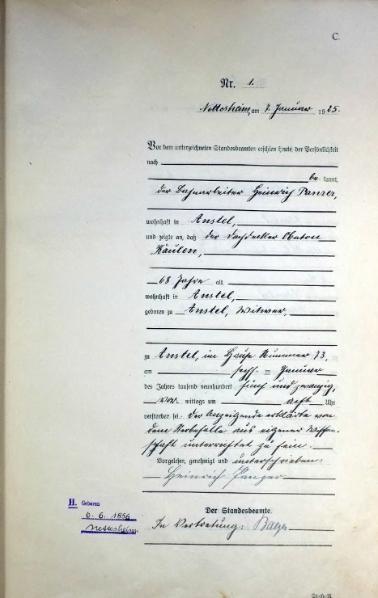 C.
Nr. 1.
Nettesheim, am 7. Januar 1925.
Vor dem unterzeichneten Standesbeamten erschien heute, der Persönlichkeit
nach
be kannt,
der Bahnarbeiter Heinrich Panzer,
wohnhaft in Anstel,
und zeigte an, daß der Dachdecker
Käulen,
68 Jahre alt
wohnhaft in Anstel,
geboren zu Anstel, Witwer,
zu Anstel, im Hause Nummer 73,
am sechs = Januar
des Jahres tausend neunhundert fünf und zwanzig,
vor mittags um acht Uhr
verstorben sei. Der Anzeigende erklärte von
dem Sterbefalle aus eigener Wissen=
schaft unterrichtet zu sein.
Vorgelesen, genehmigt und unterschrieben.
Heinrich Panzer
Der Standesbeamte.
In Vertretung:
H. Geboren
6. 6. 1856
Nettesheim